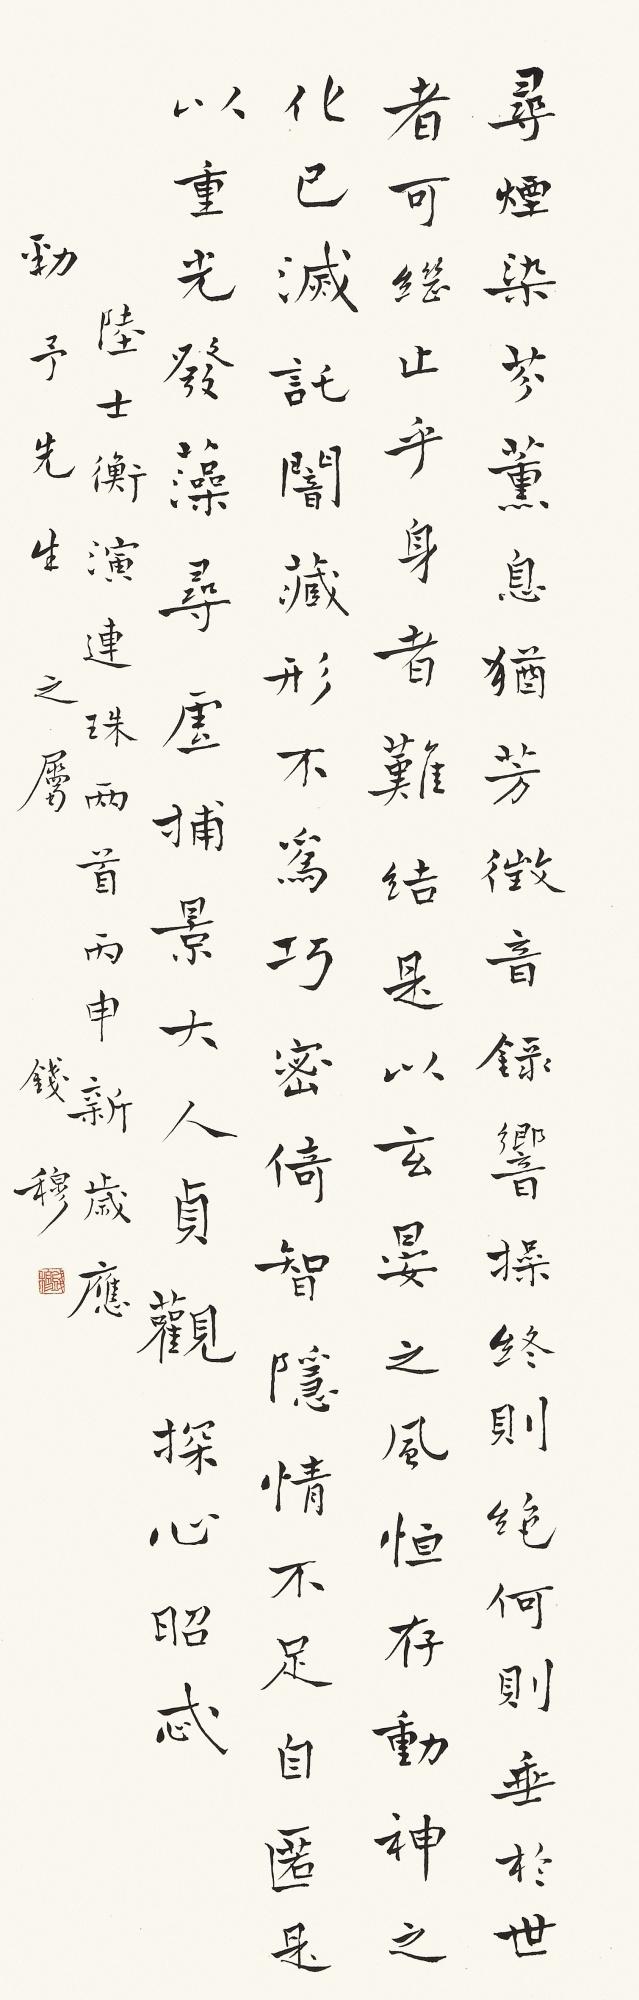 尋煙染芬薰息猶芳徵音錄響操終則絕何則垂於世
者可繼止乎身者難結是以玄晏之風恒存動神之
化已滅託闇藏形不為巧密倚智隱情不足自匿是
以重光發藻尋虛捕景大人貞觀探心昭忒
陸士衡演連珠兩首丙申新歲應
勁予先生之屬 錢穆